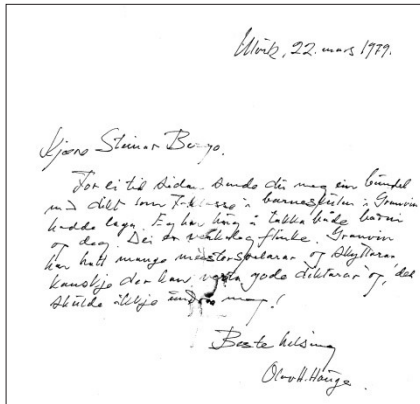 Ulvik, 22. mars 1979.
Kjære Steinar Bergo.
For ei tid sidan sende du meg ein bundel
med dikt som 7. klasse i barneskulen i Granvin
hadde laga. Eg har hug å takka både borni
og deg. Dei er verkeleg flinke. Granvin
har hatt mange meisterspelarar og skyttarar,
kanskje der kan verta gode diktarar og, det
skulde ikkje undra meg!
Beste helsing
Olav H. Hauge.